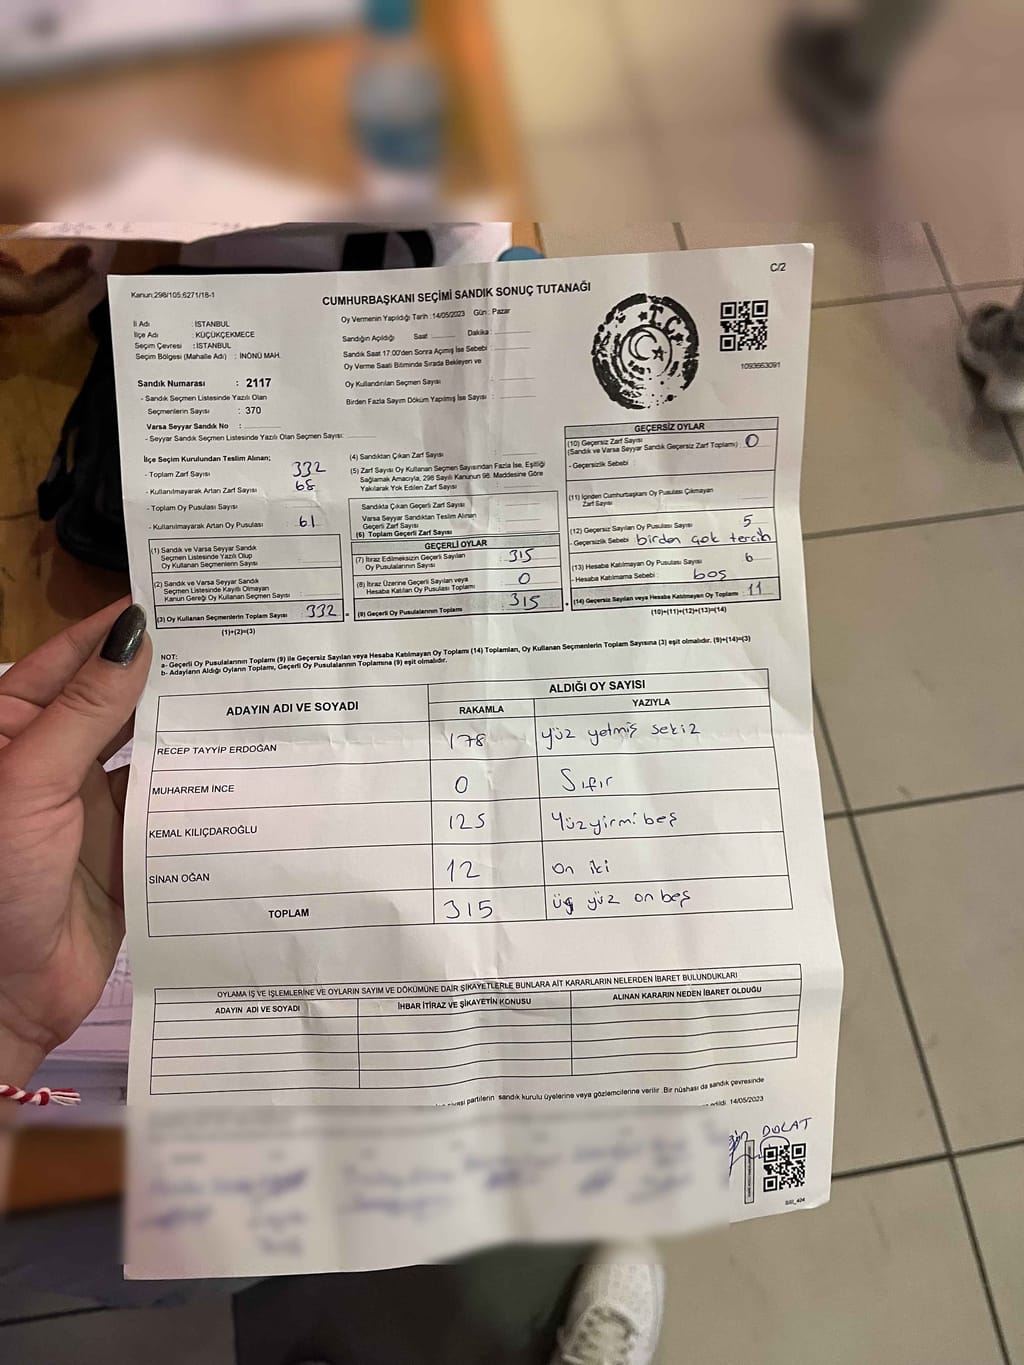 C/2
Kanun:298/105:6271/18-1
CUMHURBAŞKANI SEÇİMİ SANDIK SONUÇ TUTANAĞI
İl Adı : İSTANBUL
İlçe Adı : KÜÇÜKÇEKMECE
Seçim Çevresi : İSTANBUL
Seçim Bölgesi (Mahalle Adı) : İNÖNÜ MAH.
Oy Vermenin Yapıldığı Tarih :14/05/2023 Gün : Pazar
Sandığın Açıldığı Saat Dakika :
Sandık Saat 17:00'den Sonra Açımış İse Sebebi :
Oy Verme Saati Bitiminde Sırada Bekleyen ve
Oy Kullandırılan Seçmen Sayısı :
Birden Fazla Sayım Döküm Yapılmış İse Sayısı :
T.C.
1093663091
Sandık Numarası : 2117
- Sandık Seçmen Listesinde Yazılı Olan
Seçmenlerin Sayısı : 370
Varsa Seyyar Sandık No :
- Seyyar Sandık Seçmen Listesinde Yazılı Olan Seçmen Sayısı:
İlçe Seçim Kurulundan Teslim Alınan;
- Toplam Zarf Sayısı 332
- Kullanılmayarak Artan Zarf Sayısı 68
- Toplam Oy Pusulası Sayısı :
- Kullanılmayarak Artan Oy Pusulası : 61
(1) Sandık ve Varsa Seyyar Sandık
Seçmen Listesinde Yazılı Olup
Oy Kullanan Seçmenlerin Sayısı :
(2) Sandık ve Varsa Seyyar Sandık
Seçmen Listesinde Kayıtlı Olmayan
Kanun Gereği Oy Kullanan Seçmen Sayısı :
(3) Oy Kullanan Seçmenlerin Toplam Sayısı : 332
(1)+(2)=(3)
(4) Sandıktan Çıkan Zarf Sayısı :
(5) Zarf Sayısı Oy Kullanan Seçmen Sayısından Fazla İse, Eşitliği
Sağlamak Amacıyla, 298 Sayılı Kanunun 98. Maddesine Göre
Yakılarak Yok Edilen Zarf Sayısı :
Sandıkta Çıkan Geçerli Zarf Sayısı :
Varsa Seyyar Sandıktan Teslim Alınan
Geçerli Zarf Sayısı :
(6) Toplam Geçerli Zarf Sayısı :
GEÇERLİ OYLAR
(7) İtiraz Edilmeksizin Geçerli Sayılan
Oy Pusulasının Sayısı : 315
(8) İtiraz Üzerine Geçerli Sayılan veya
Hesaba Katılan Oy Pusulası Toplamı : 0
(9) Geçerli Oy Pusulalarının Toplamı : 315
GEÇERSİZ OYLAR
(10) Geçersiz Zarf Sayısı
(Sandık ve Varsa Seyyar Sandık Geçersiz Zarf Toplamı) : 0
- Geçersizlik Sebebi :
(11) İçinden Cumhurbaşkanı Oy Pusulası Çıkmayan
Zarf Sayısı :
(12) Geçersiz Sayılan Oy Pusulası Sayısı : 5
- Geçersizlik Sebebi : birden çok tercih
(13) Hesaba Katılmayan Oy Pusulası Sayısı : 6
- Hesaba Katılmama Sebebi : boş
(14) Geçersiz Sayılan veya Hesaba Katılmayan Oy Toplamı : 11
(10)+(11)+(12)+(13)=(14)
NOT:
a- Geçerli Oy Pusulalarının Toplamı (9) ile Geçersiz Sayılan veya Hesaba Katılmayan Oy Toplamı (14) Toplamları, Oy Kullanan Seçmenlerin Toplam Sayısına (3) eşit olmalıdır. (9)+(14)=(3)
b- Adayların Aldığı Oyların Toplamı, Geçerli Oy Pusulalarının Toplamına (9) eşit olmalıdır.
ADAYIN ADI VE SOYADI ALDIĞI OY SAYISI
RAKAMLA YAZIYLA
RECEP TAYYİP ERDOĞAN 178 yüz yetmiş sekiz
MUHARREM İNCE 0 Sıfır
KEMAL KILIÇDAROĞLU 125 Yüzyirmibeş
SİNAN OĞAN 12 on iki
TOPLAM 315 üç yüz on beş
OYLAMA İŞ VE İŞLEMLERİNE VE OYLARIN SAYIM VE DÖKÜMÜNE DAİR ŞİKAYETLERLE BUNLARA AİT KARARLARIN NELERDEN İBARET BULUNDUKLARI
ADAYIN ADI VE SOYADI İHBAR İTİRAZ VE ŞİKAYETİN KONUSU ALINAN KARARIN NEDEN İBARET OLDUĞU
partilerin sandık kurulu üyelerine veya gözlemcilerine verilir. Bir nüshası da sandık çevresinde
14/05/2023
DOLAT